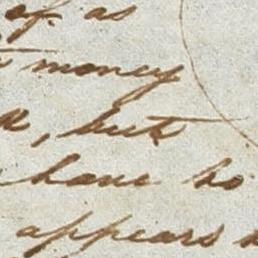 of as
money
, but
have no
appears